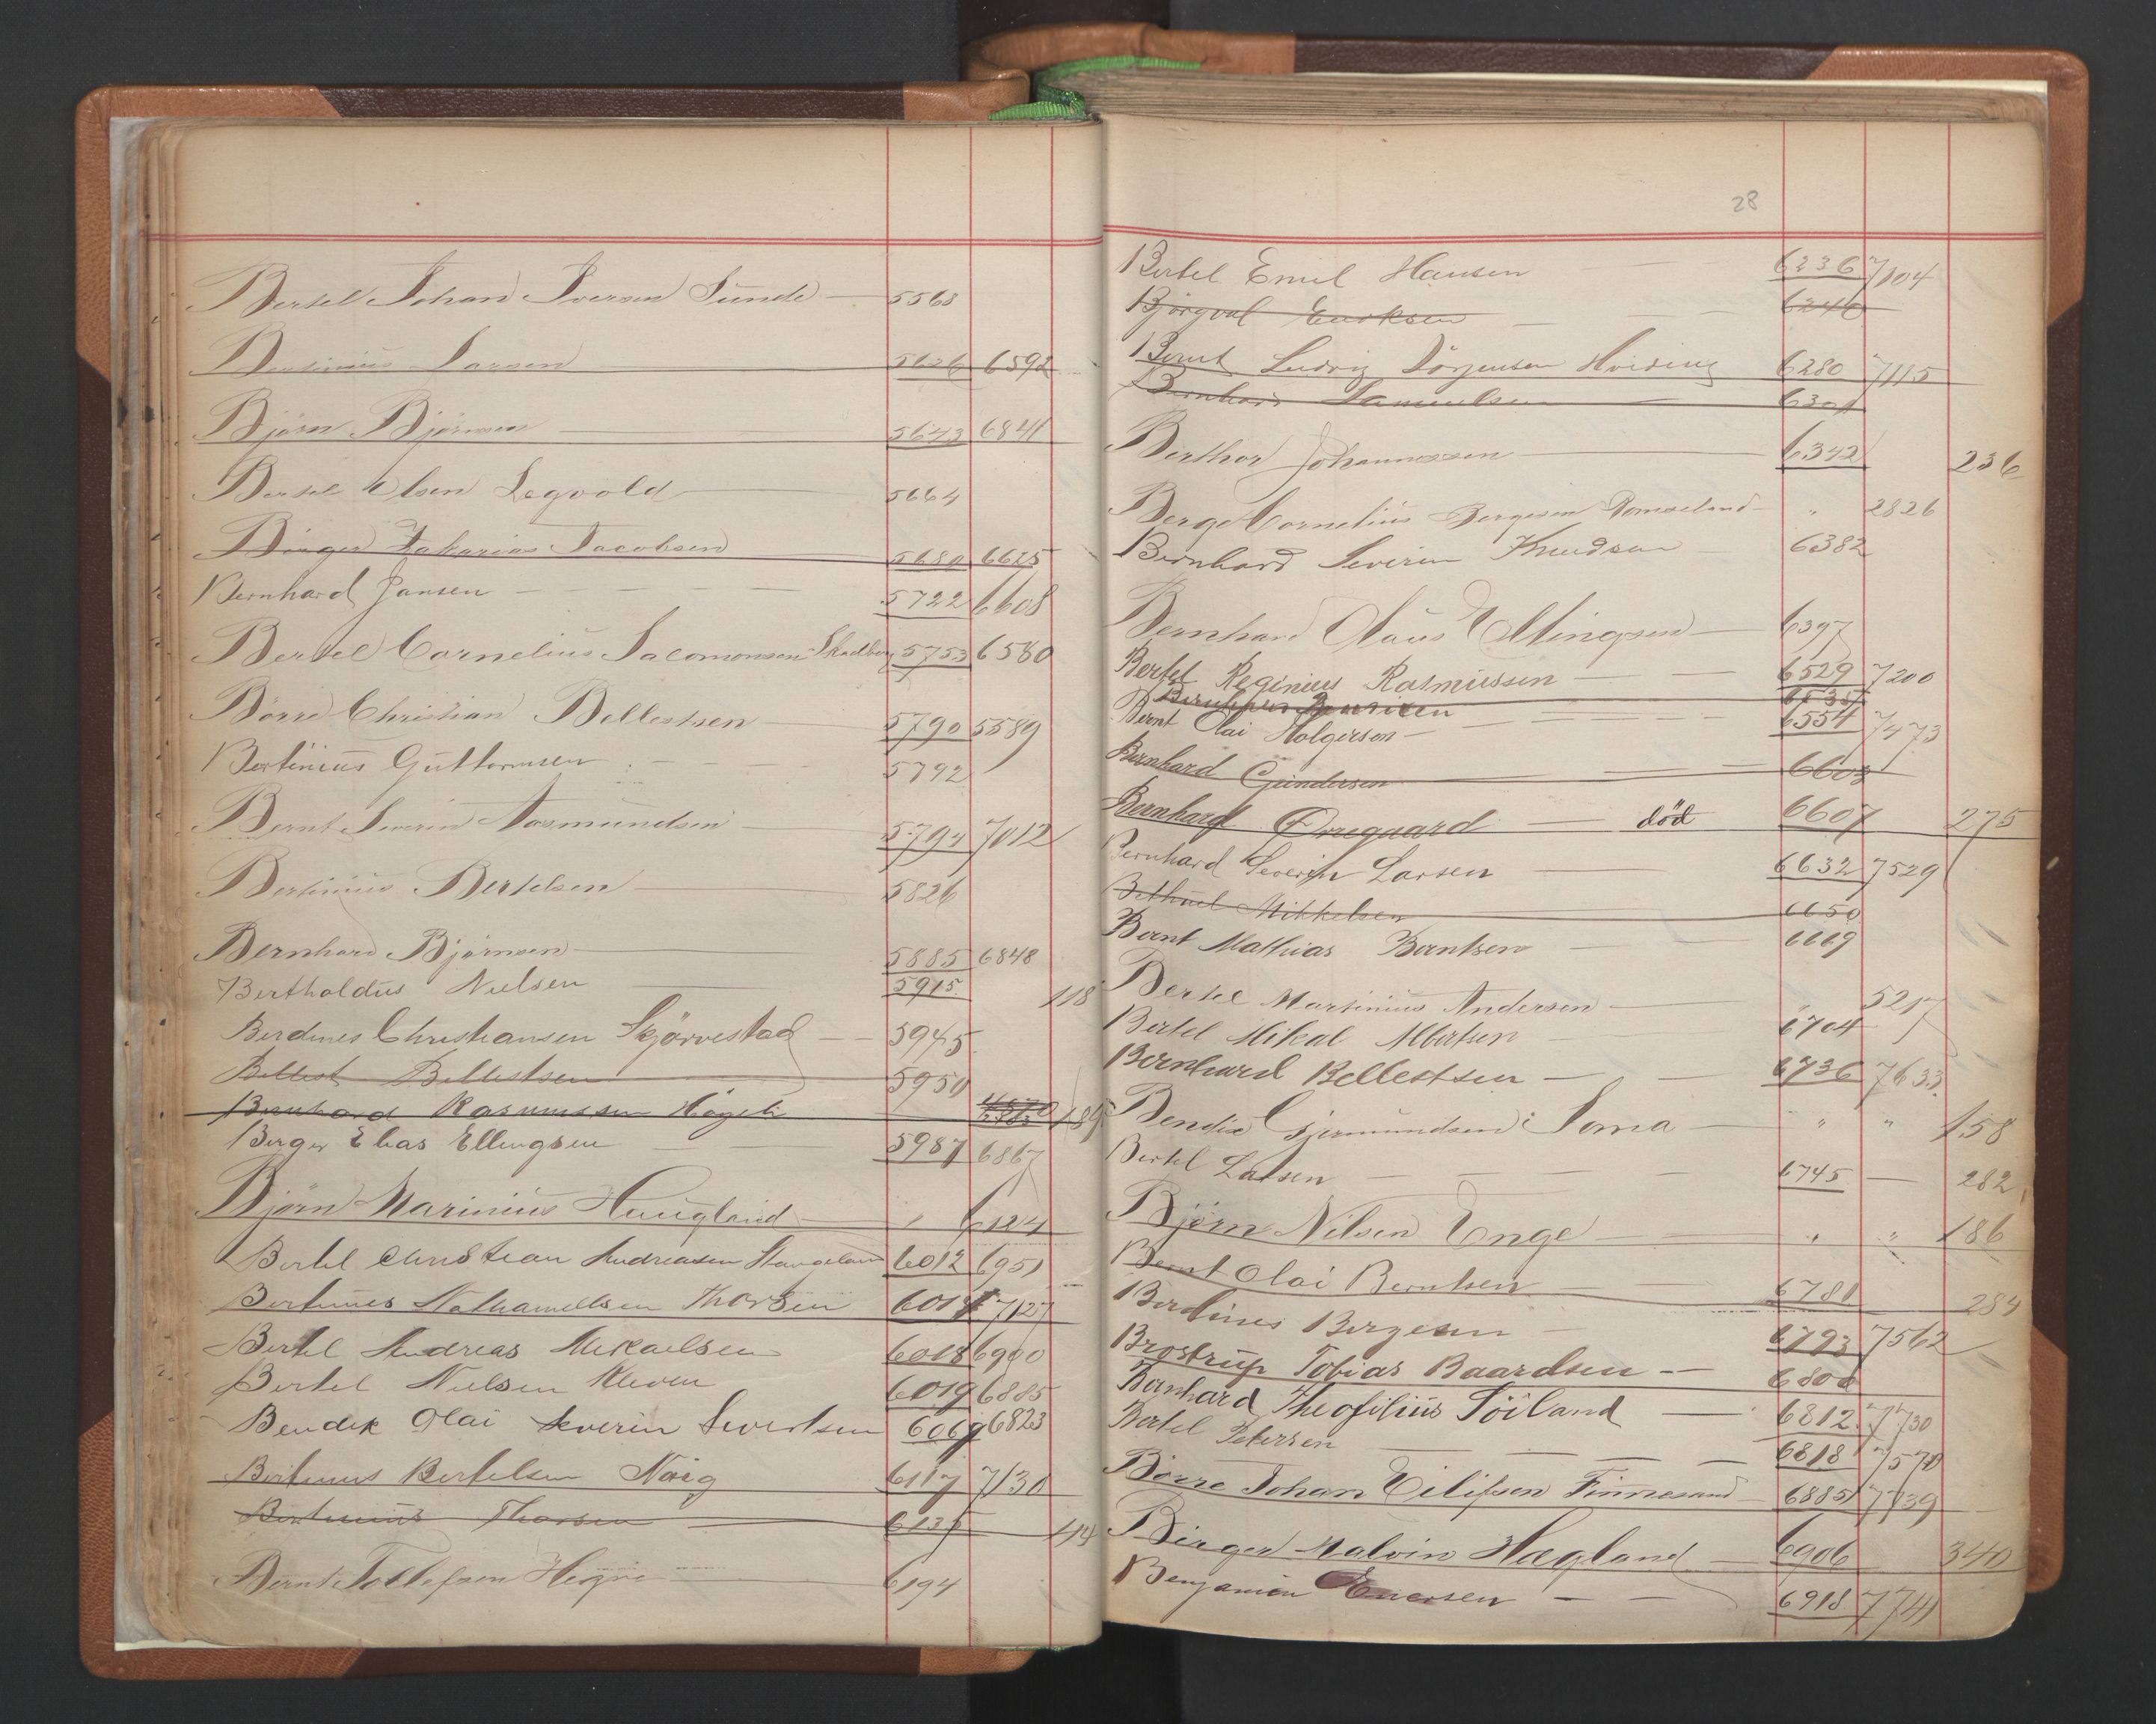 Bertel Johan Iversen Sunde 5568
Bertinius Larsen 5626 6592
Björn Björnsen 5643 6841
Bertel Olsen Legvold 5664
Birger Zakarias Jacobsen 5680 6625
Bernhard Jansen 5722 6608
Bertel Cornelius Salomonsen Skadberg 5753 6580
Börre Christian Bellestsen 5790 5589
Bertinius Guttormsen 5792
Bernt Severin Aasmundsen 5794 7012
Bertinius Bertelsen 5826
Bernhard Björnsen 5885 6848
Bertholdus Nielsen 5915 118
Berdines Christiansen Skjörvestad 5945
Bellest Bellestsen 5950
Bernhard Rasmussen Högeli 189
Berger Elias Ellingsen 5987 6867
Björn Marinius Haugland " 6124
Bertel Christian Andreasen Stangeland 6012 6951
Bertines Nathanielsen Thorsen 6017 7127
Bertel Andreas Mikaelsen 6018 6900
Bertel Nielsen Kleven 6019 6885
Bendik Olai Severin Sivertsen 6069 6823
Bertinus Bertelsen Norg 6117 7130
Bertinius Thorsen 6135 114
Bernt Tollefsen Hegre 6194
28
Bertel Emil Hansen 6236 7104
Björgvol Eriksen 6240
Bernt Ludvig Jörgensen Hviding 6280 7115
Bernhard Samuelsen 6301
Berthor Johannessen 6342 236
Berge Cornelius Bergesen Romseland " 2826
Bernhard Severin Knudsen 6382
Bernhard Olaus Ellingsen 6397
Bertel Reginius Rasmussen 6529 7200
6535
Bernt Olai Holgersen 6554 7473
Bernhard Gundersen 6603
Bernhard Orregaard död 6607 275
Bernhard Severin Larsen 6632 7529
Bethuel Mikkelsen 6650
Bernt Mathias Berntsen 6669
Bertel Martinius Andersen " 5217
Bertel Mikal Albertsen 6704
Bernhard Bellestsen 6736 7633
Bendix Gjermundsen Soma " " 158
Bertel Larsen 6745 282
Björn Nilsen Enge " " 186
Bernt Olai Berntsen 6781 284
Berdines Bergesen 6793 7562
Brostrup Tobias Baardsen 6800
Bernhard Theofilius Söiland 6812 7730
Bertel Petersen 6818 7570
Börre Johan Eilifsen Finnesand 6885 7739
Birger Malvin Hægland 6906 340
Benjamin Enersen 6918 7741